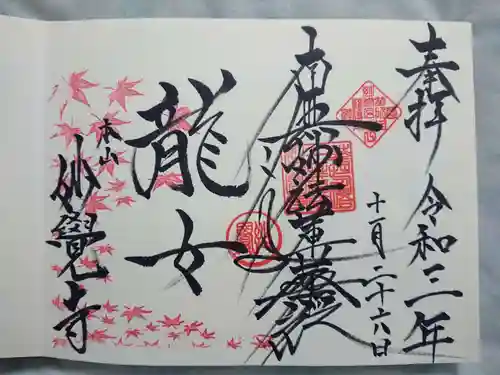 奉拝
令和三年
十一月二十六日
南無妙法蓮華経
龍女
本山
妙覺寺